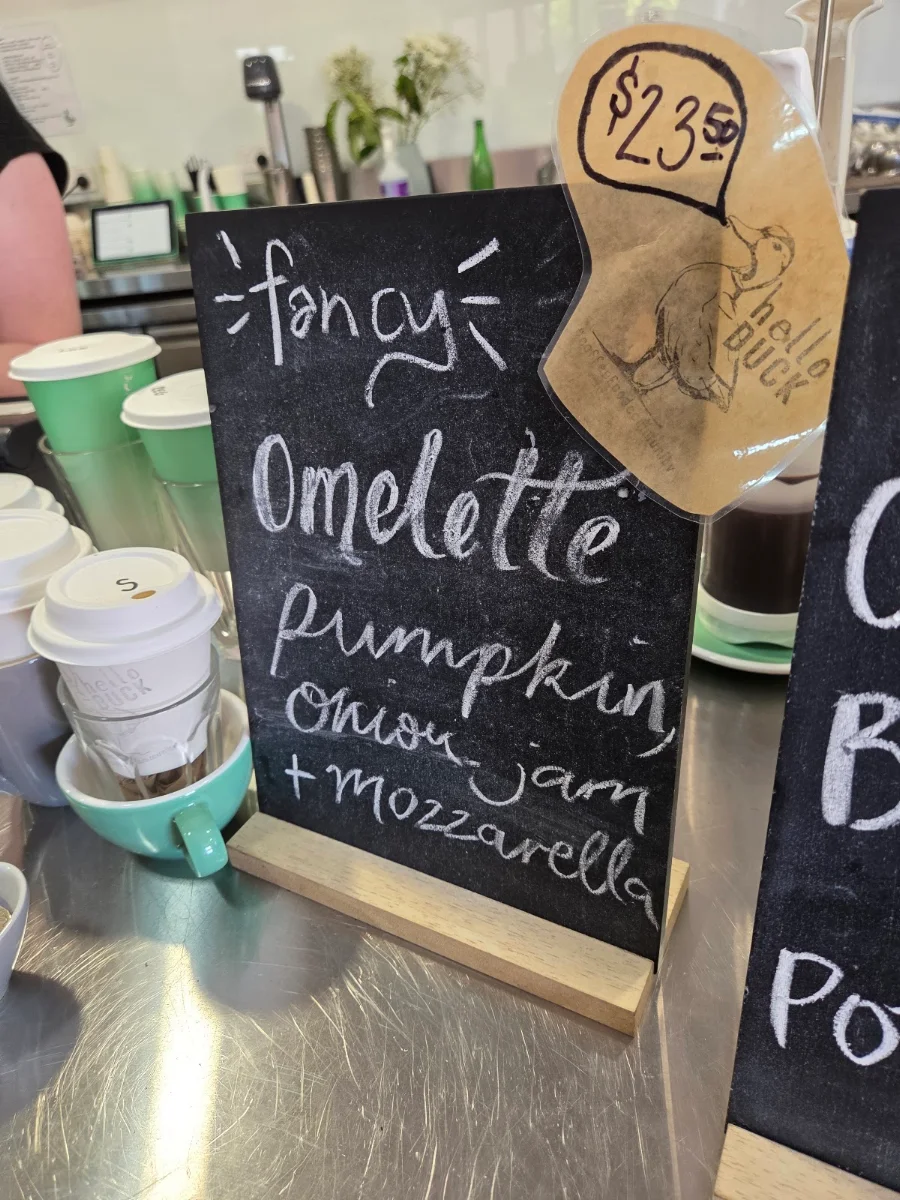 $23.50
hello
DUCK
fancy
Omelette
pumpkin,
onion jam
+ mozzarella
S
hello
DUCK
B
Po